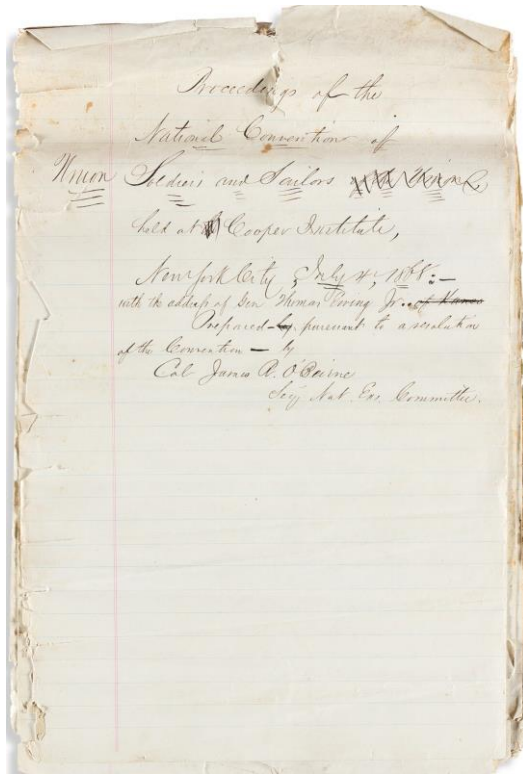 Proceedings of the
National Convention of
Union Soldiers and Sailors
held at Cooper Institute,
New York City, July 4, 1868:—
with the address of Gen Thomas Ewing Jr. of
Prepared by pursuant to a resolution
of the Convention — by
Col James R. O'Beirne
Secy Nat. Exe. Committee.